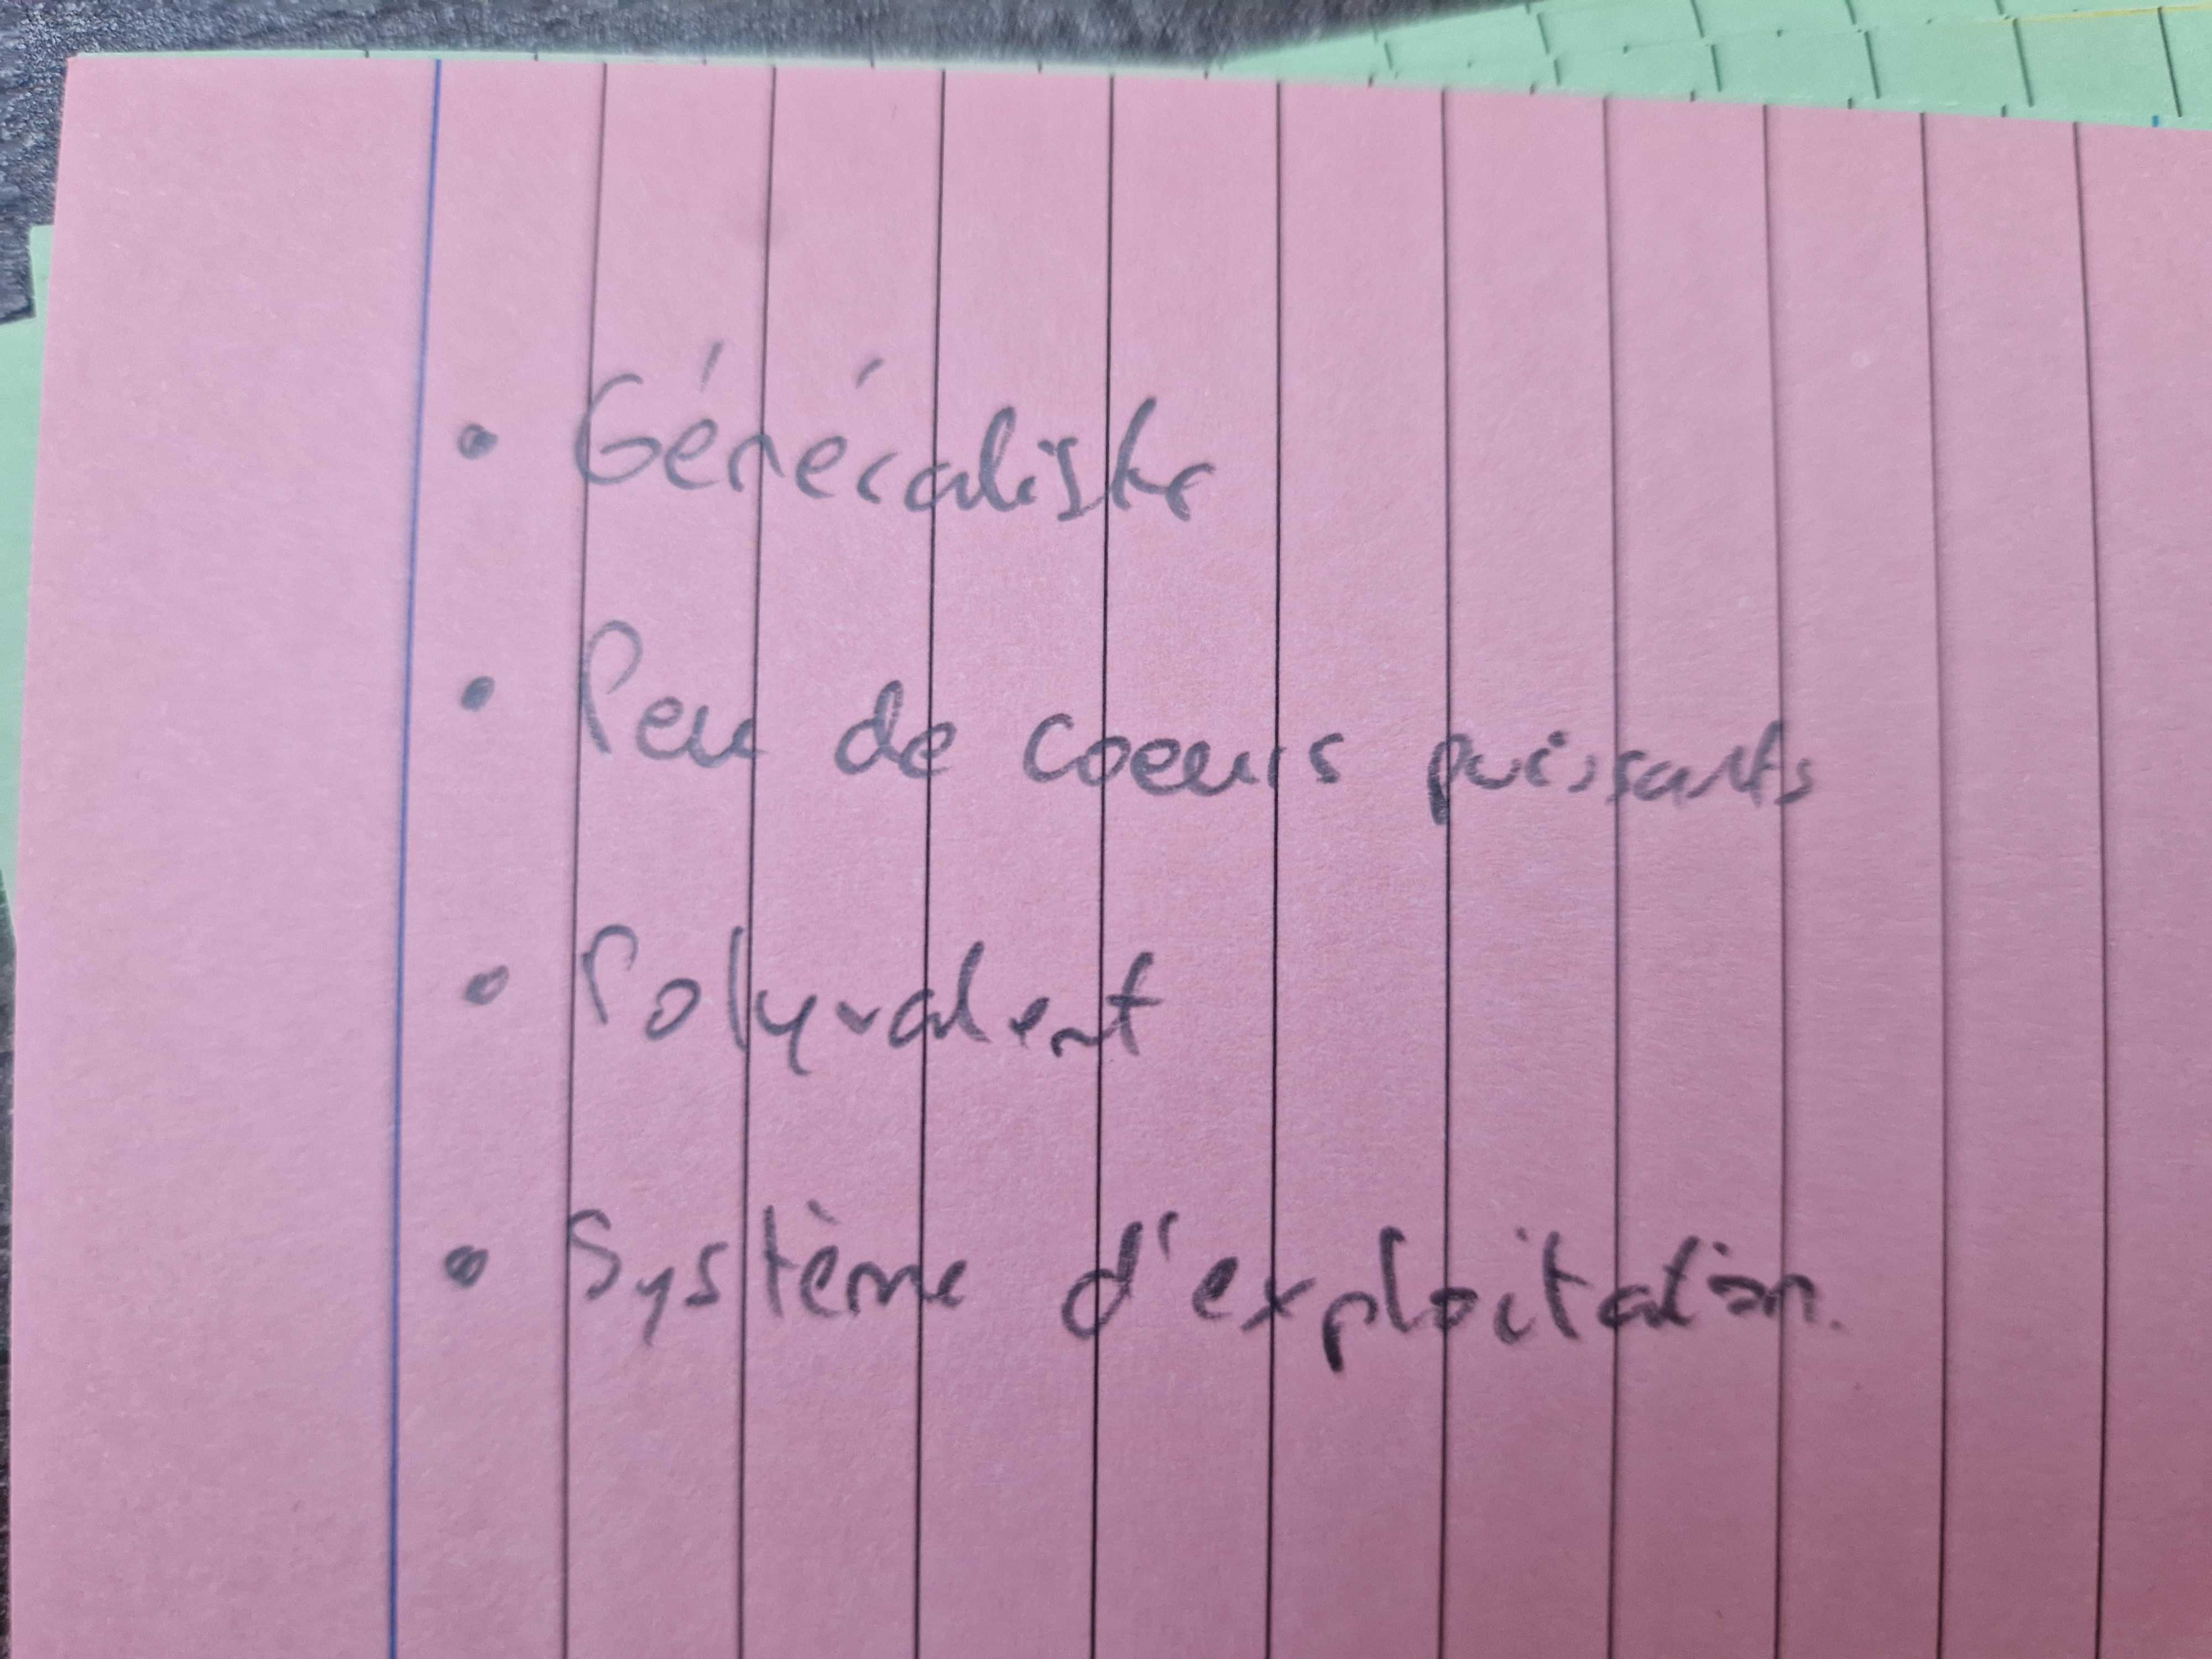 • Généraliste
• Peu de coeurs puissants
• Polyvalent
• Système d'exploitation.